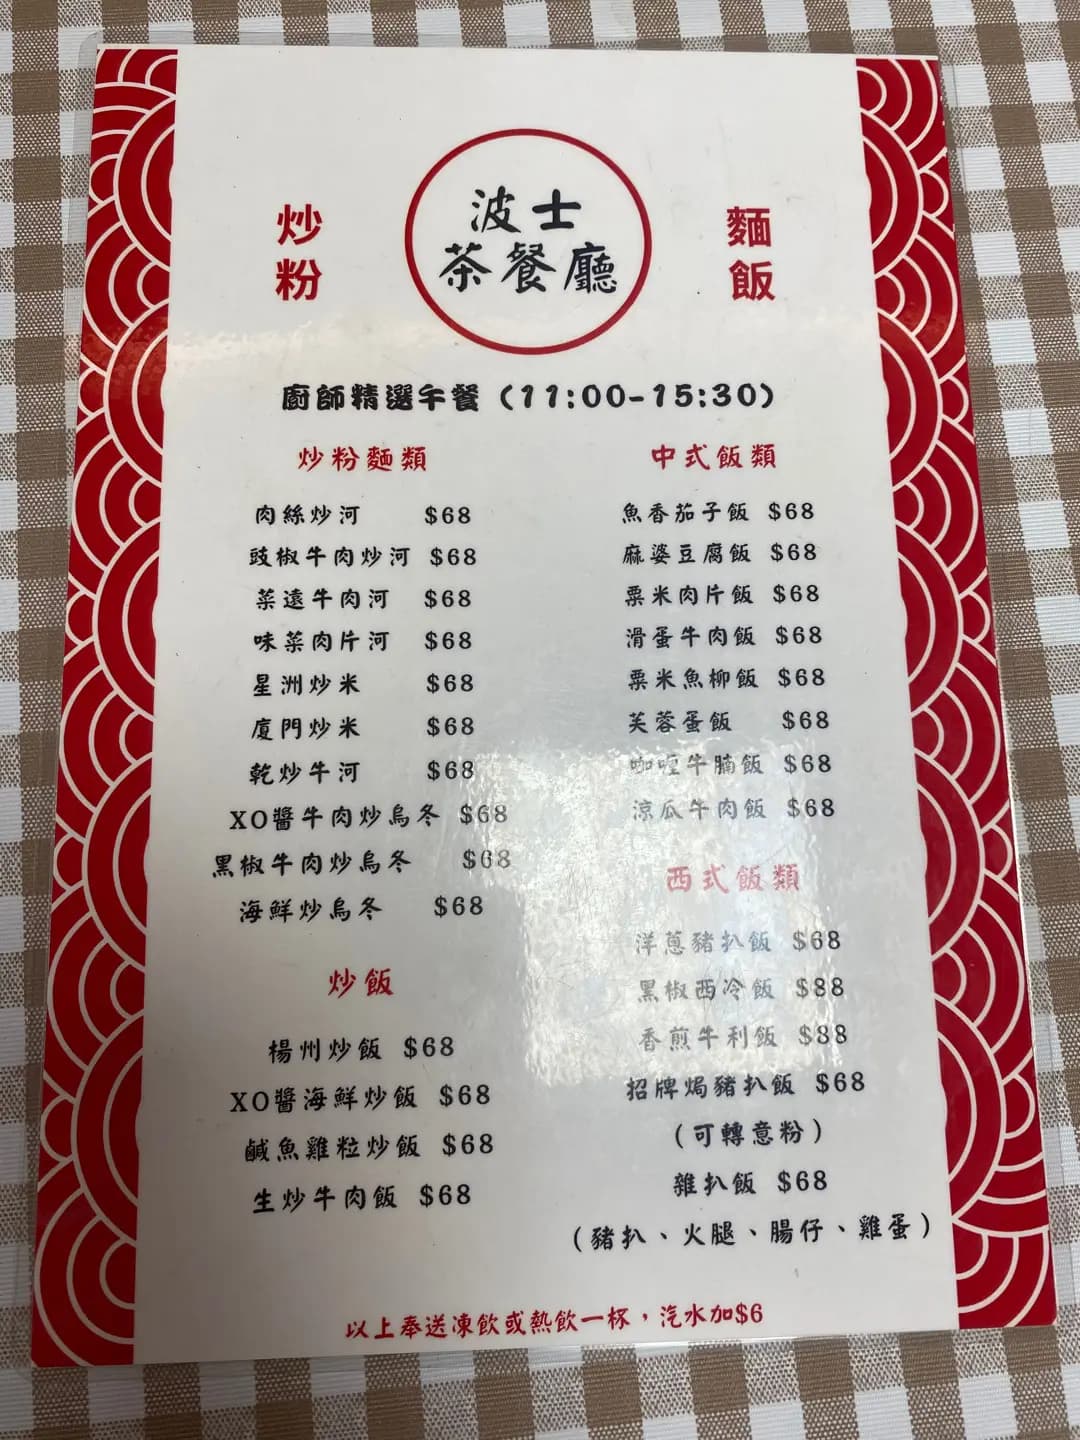 炒粉
波士
茶餐廳
麵飯
廚師精選午餐 (11:00-15:30)
炒粉麵類
肉絲炒河 $68
豉椒牛肉炒河 $68
菜遠牛肉河 $68
味菜肉片河 $68
星洲炒米 $68
廈門炒米 $68
乾炒牛河 $68
XO醬牛肉炒烏冬 $68
黑椒牛肉炒烏冬 $68
海鮮炒烏冬 $68
炒飯
楊州炒飯 $68
XO醬海鮮炒飯 $68
鹹魚雞粒炒飯 $68
生炒牛肉飯 $68
中式飯類
魚香茄子飯 $68
麻婆豆腐飯 $68
粟米肉片飯 $68
滑蛋牛肉飯 $68
粟米魚柳飯 $68
芙蓉蛋飯 $68
咖喱牛腩飯 $68
涼瓜牛肉飯 $68
西式飯類
洋蔥豬扒飯 $68
黑椒西冷飯 $88
香煎牛利飯 $88
招牌焗豬扒飯 $68
(可轉意粉)
雜扒飯 $68
(豬扒、火腿、腸仔、雞蛋)
以上奉送凍飲或熱飲一杯，汽水加$6